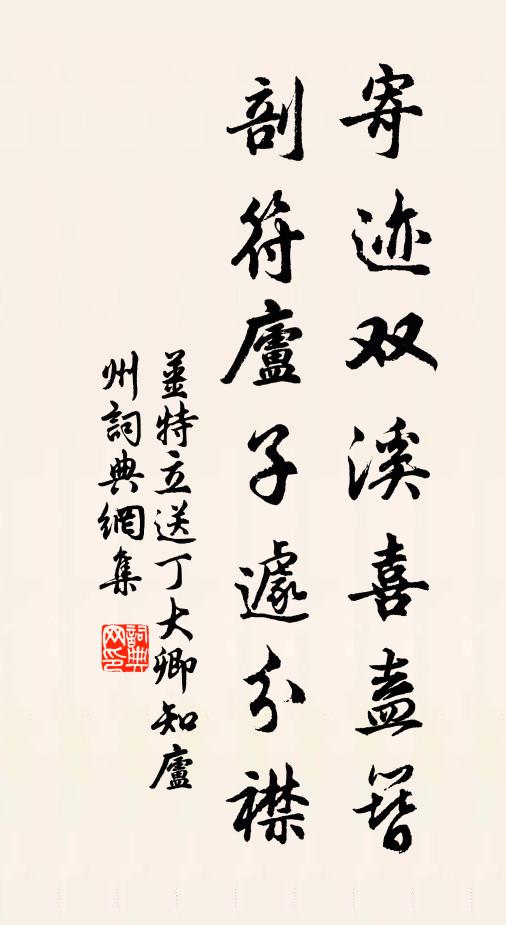 寄迹双溪喜盍簪
剖符廬子遽分襟
姜特立送丁大卿知廬
州詞典網集
詞典網印